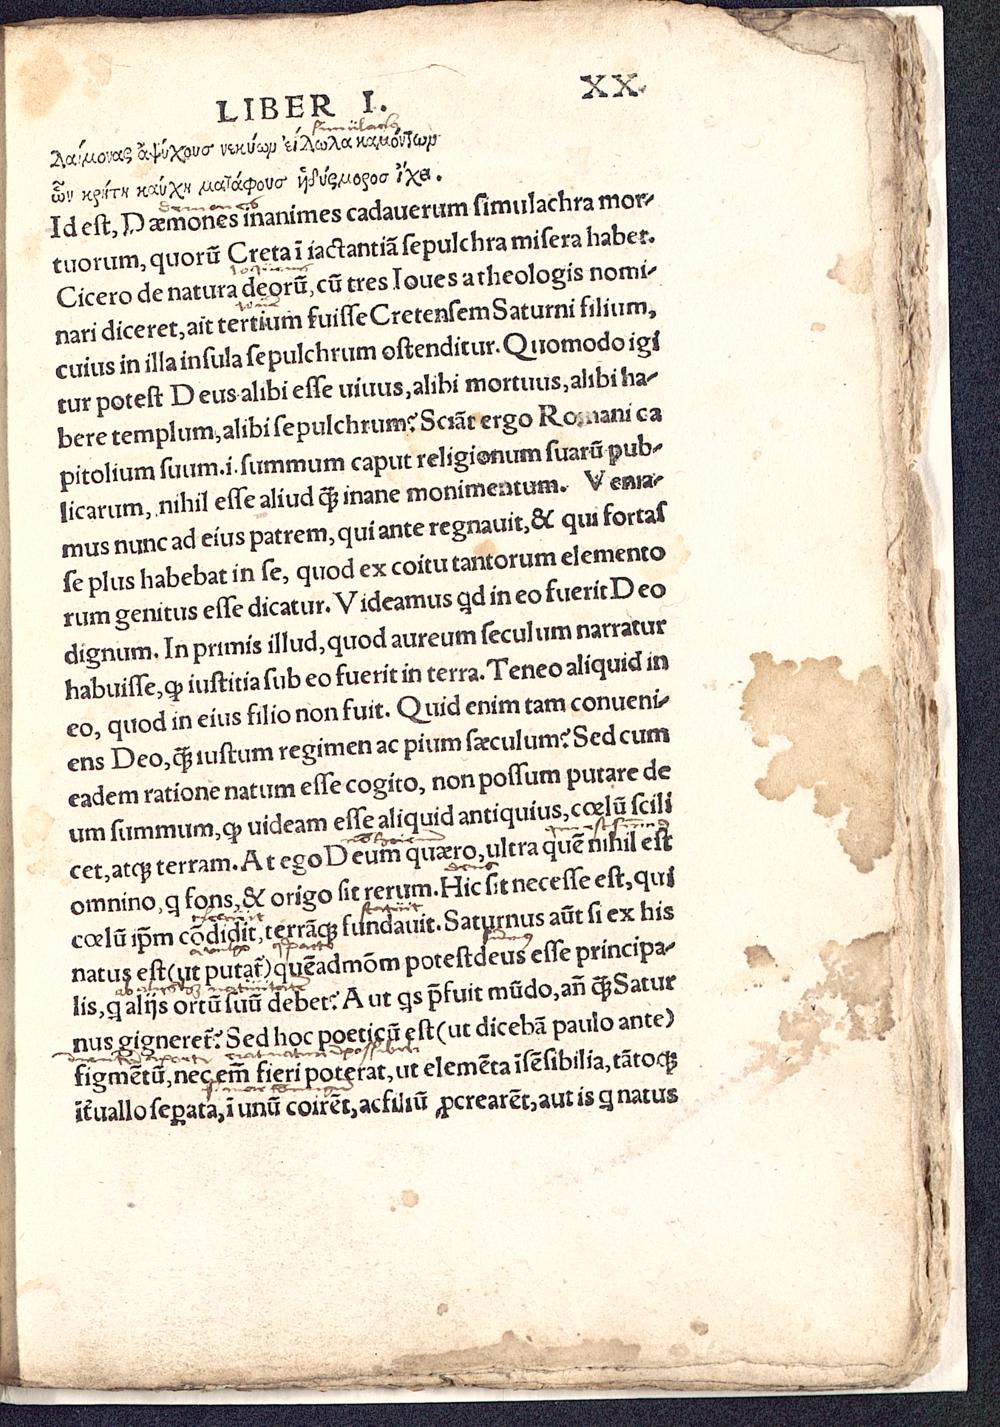 LIBER I. XX.
simulach
Δαίμονας ἀψύχουσ νεκύωρ εἴδωλα καμόντωρ
ὧν κρήτη καύχημα τάφουσ ἡ δύσμοροσ ἴχει.
demones
Id eſt, Dæmones inanimes cadauerum ſimulachra mor-
tuorum, quorū Creta ī iactantiā ſepulchra miſera habet.
Cicero de natura deorū, cū tres Ioues a theologis nomi-
nari diceret, ait tertium fuiſſe Cretenſem Saturni filium,
cuius in illa inſula ſepulchrum oſtenditur. Quomodo igi
tur poteſt Deus alibi eſſe uiuus, alibi mortuus, alibi ha-
bere templum, alibi ſepulchrum? Sciāt ergo Romani ca
pitolium ſuum.i.ſummum caput religionum ſuarū pub-
licarum, nihil eſſe aliud q̃ inane monimentum. Venia-
mus nunc ad eius patrem, qui ante regnauit, & qui fortaſ
ſe plus habebat in ſe, quod ex coitu tantorum elemento
rum genitus eſſe dicatur. Videamus qd in eo fuerit Deo
dignum. In primis illud, quod aureum ſeculum narratur
habuiſſe, ꝙ iuſtitia ſub eo fuerit in terra. Teneo aliquid in
eo, quod in eius filio non fuit. Quid enim tam conueni-
ens Deo, q̃ iuſtum regimen ac pium ſæculum? Sed cum
eadem ratione natum eſſe cogito, non poſſum putare de
um ſummum, ꝙ uideam eſſe aliquid antiquius, cœlū ſcili
cet, atqꝫ terram. At ego Deum quæro, ultra quē nihil eſt
deus
omnino, q fons, & origo ſit rerum. Hic ſit neceſſe eſt, qui
ſtatuit
cœlū ip̄m cōdidit, terrāqꝫ fundauit. Saturnus aūt ſi ex his
natus eſt (ut putat̄) quēadmōm poteſt deus eſſe principa-
lis, q alijs ortū ſuū debet? Aut qs p̄fuit mūdo, añ q̃ Satur
nus gigneret̄? Sed hoc poeticū eſt (ut dicebā paulo ante)
figmētū, nec em̄ fieri poterat, ut elemēta īſēſibilia, tātoqꝫ
īt̄uallo ſeꝑata, ī unū coirēt, ac filiū ꝓcrearēt, aut is q natus